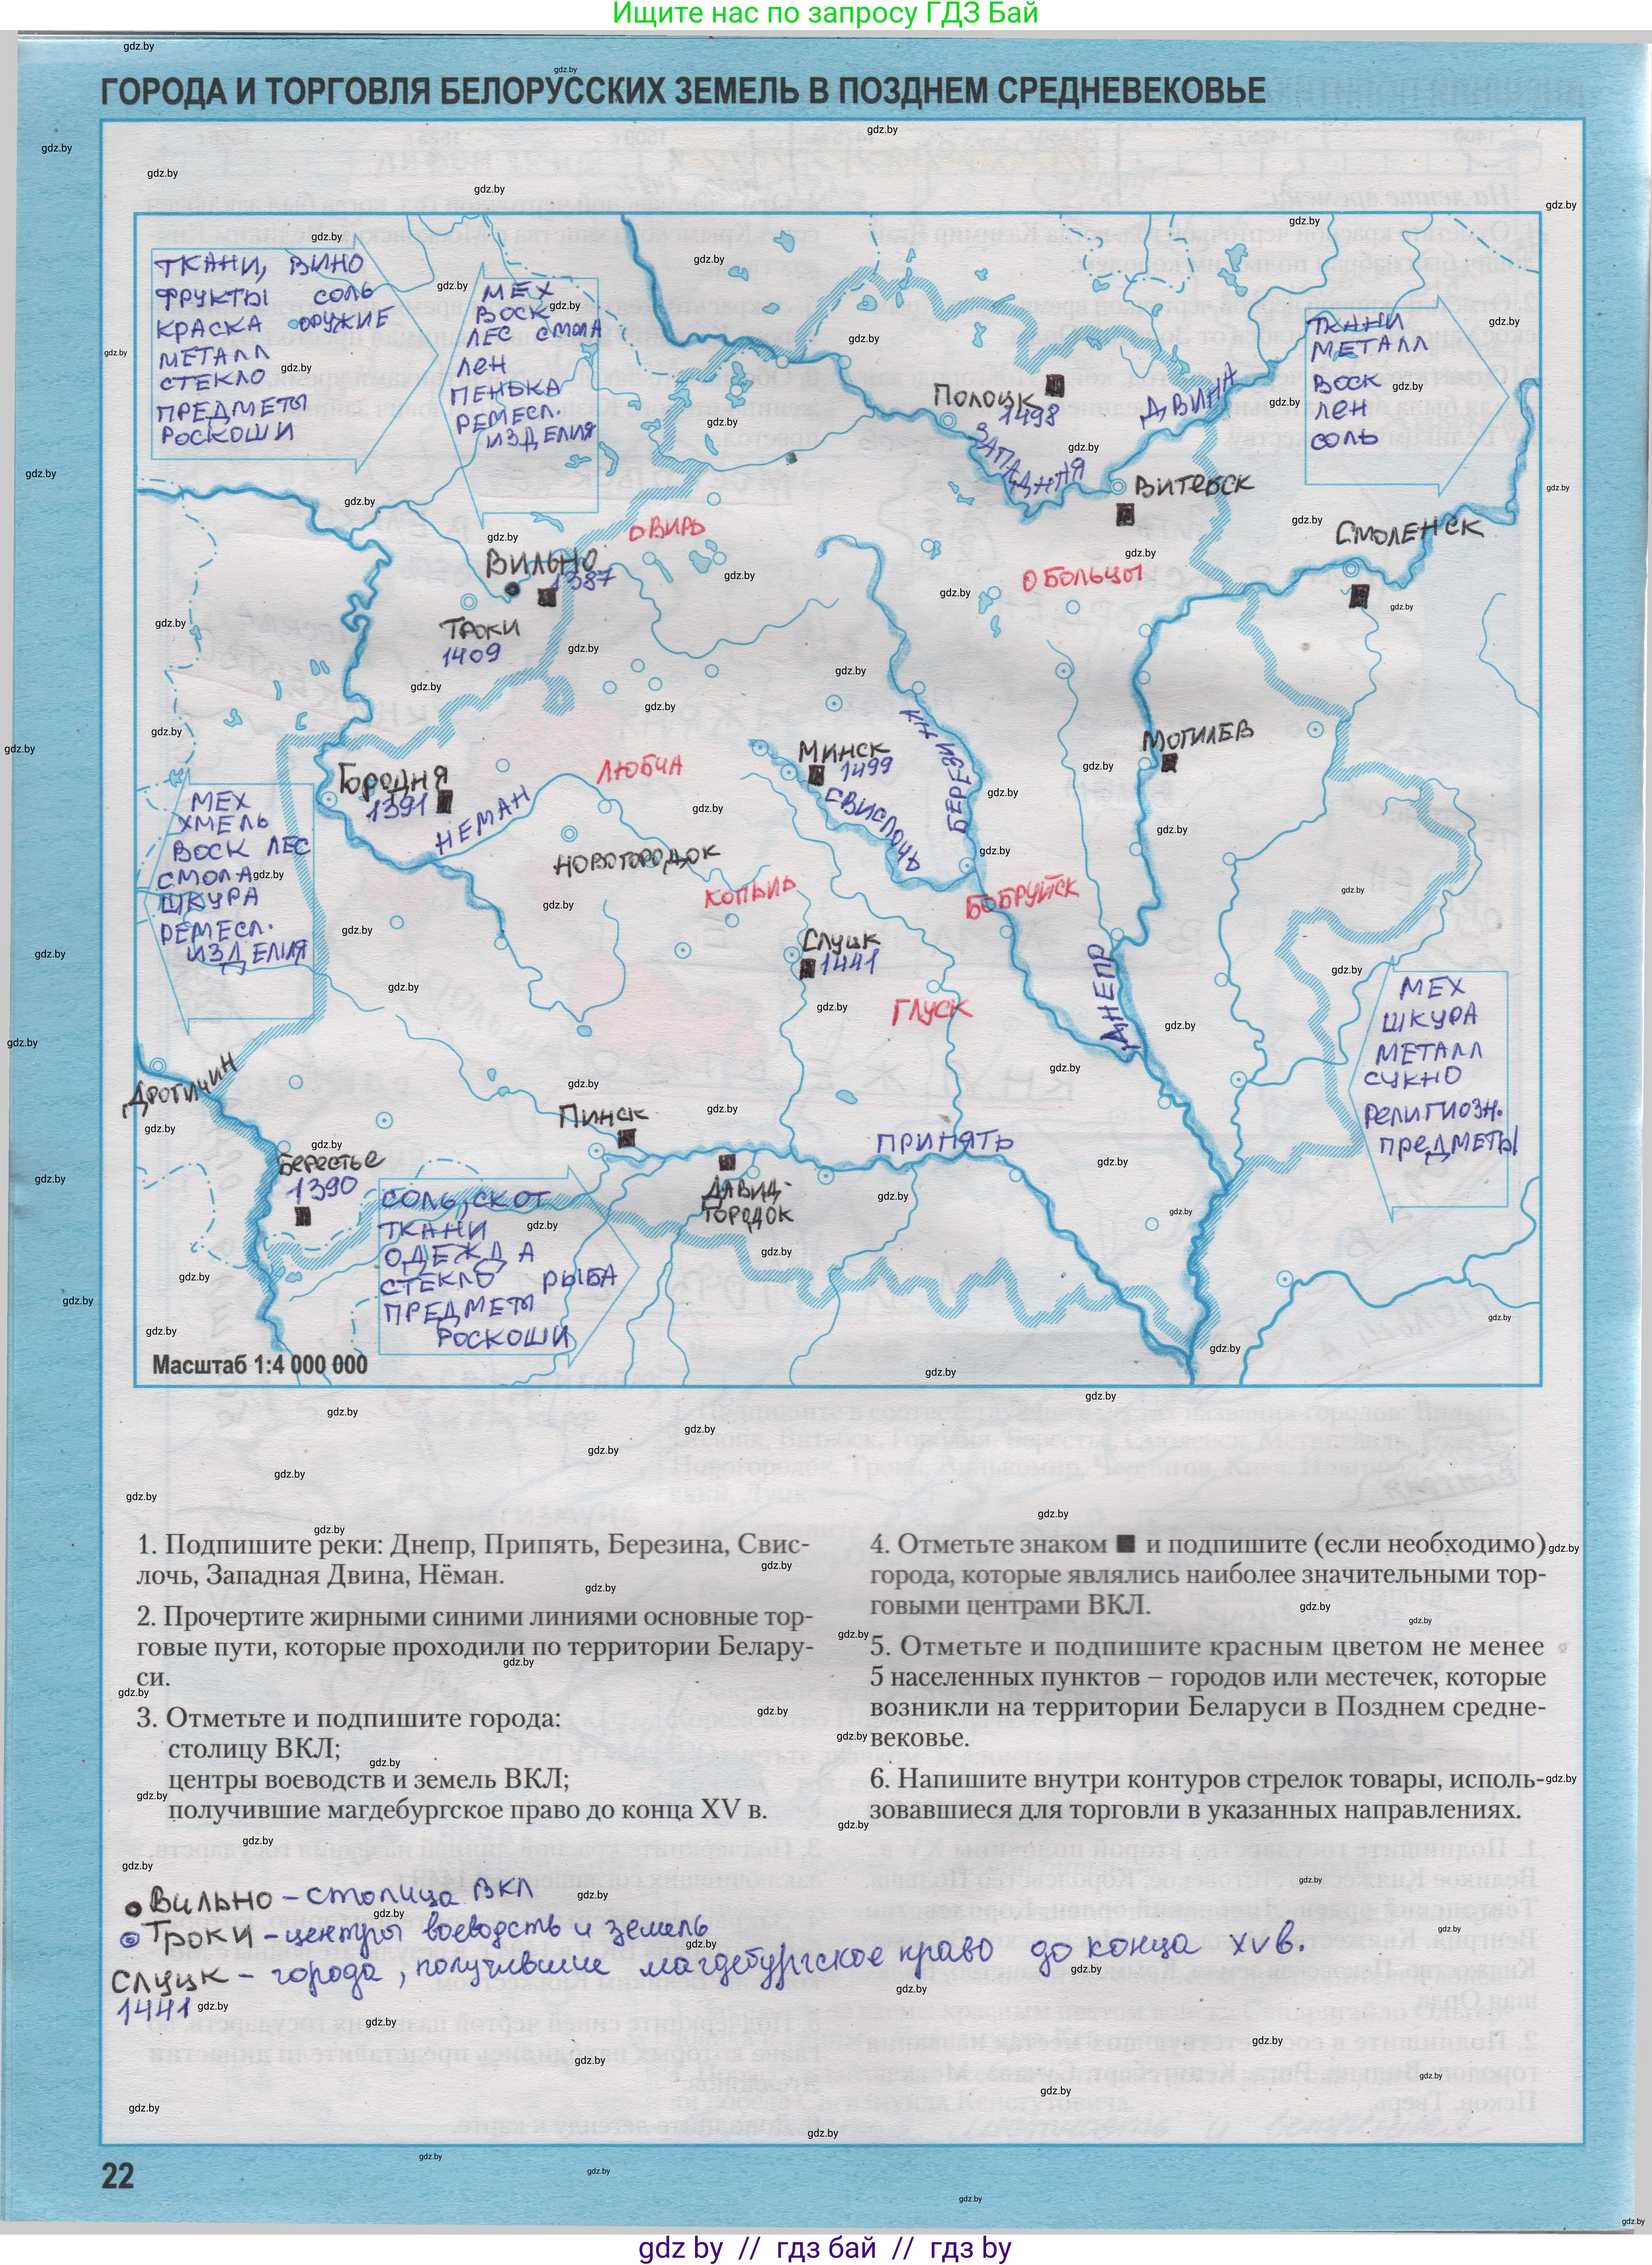 Ищите нас по запросу ГДЗ Бай
ГОРОДА И ТОРГОВЛЯ БЕЛОРУССКИХ ЗЕМЕЛЬ В ПОЗДНЕМ СРЕДНЕВЕКОВЬЕ
ТКАНИ, ВИНО
ФРУКТЫ СОЛЬ
КРАСКА ОРУЖИЕ
МЕТАЛЛ
СТЕКЛО
ПРЕДМЕТЫ
РОСКОШИ
МЕХ
ВОСК
ЛЕС СМОЛА
ЛЕН
ПЕНЬКА
РЕМЕСЛ.
ИЗДЕЛИЯ
ТКАНИ
МЕТАЛЛ
ВОСК
ЛЕН
СОЛЬ
ПОЛОЦК
1498
ЗАПАДНАЯ
ДВИНА
ВИТЕБСК
СМОЛЕНСК
ВИРЬ
ОБОЛЬЦЫ
ВИЛЬНО
1387
ТРОКИ
1409
ГОРОДНЯ
1391
НЕМАН
ЛЮБЧА
МИНСК
1499
СВИСЛОЧЬ
МОГИЛЕВ
НОВОГОРОДОК
КОПЫЛЬ
БОБРУЙСК
СЛУЦК
1441
ГЛУСК
ДНЕПР
МЕХ
ХМЕЛЬ
ВОСК ЛЕС
СМОЛА
ШКУРА
РЕМЕСЛ.
ИЗДЕЛИЯ
МЕХ
ШКУРА
МЕТАЛЛ
СУКНО
РЕЛИГИОЗН.
ПРЕДМЕТЫ
ДРОГИЧИН
БЕРЕСТЬЕ
1390
ПИНСК
ПРИПЯТЬ
ДАВИД-
ГОРОДОК
СОЛЬ, СКОТ
ТКАНИ
ОДЕЖДА
СТЕКЛО РЫБА
ПРЕДМЕТЫ
РОСКОШИ
Масштаб 1:4 000 000
1. Подпишите реки: Днепр, Припять, Березина, Свис-
лочь, Западная Двина, Нёман.
2. Прочертите жирными синими линиями основные тор-
говые пути, которые проходили по территории Белару-
си.
3. Отметьте и подпишите города:
столицу ВКЛ;
центры воеводств и земель ВКЛ;
получившие магдебургское право до конца XV в.
4. Отметьте знаком ■ и подпишите (если необходимо)
города, которые являлись наиболее значительными тор-
говыми центрами ВКЛ.
5. Отметьте и подпишите красным цветом не менее
5 населенных пунктов – городов или местечек, которые
возникли на территории Беларуси в Позднем средне-
вековье.
6. Напишите внутри контуров стрелок товары, исполь-
зовавшиеся для торговли в указанных направлениях.
Вильно – столица ВКЛ
Троки – центры воеводств и земель
Слуцк – города, получившие магдебургское право до конца XV в.
1441
22
gdz by // гдз бай // гдз by